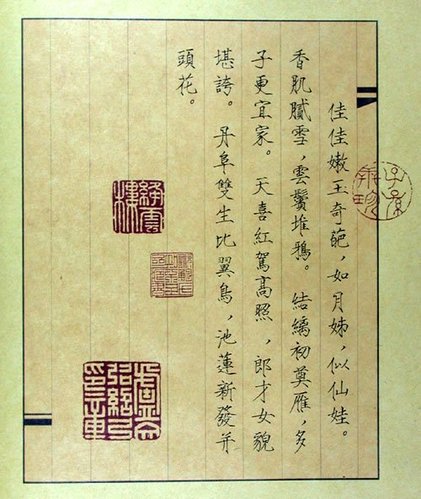 佳佳嫩玉奇葩，如月姊，似仙娃。
香肌膩雪，雲鬢堆鴉。結縭初奠雁，多
子更宜家。天喜紅駕高照，郎才女貌
堪誇。丹阜雙生比翼鳥，池蓮新發并
頭花。
絳雲樓